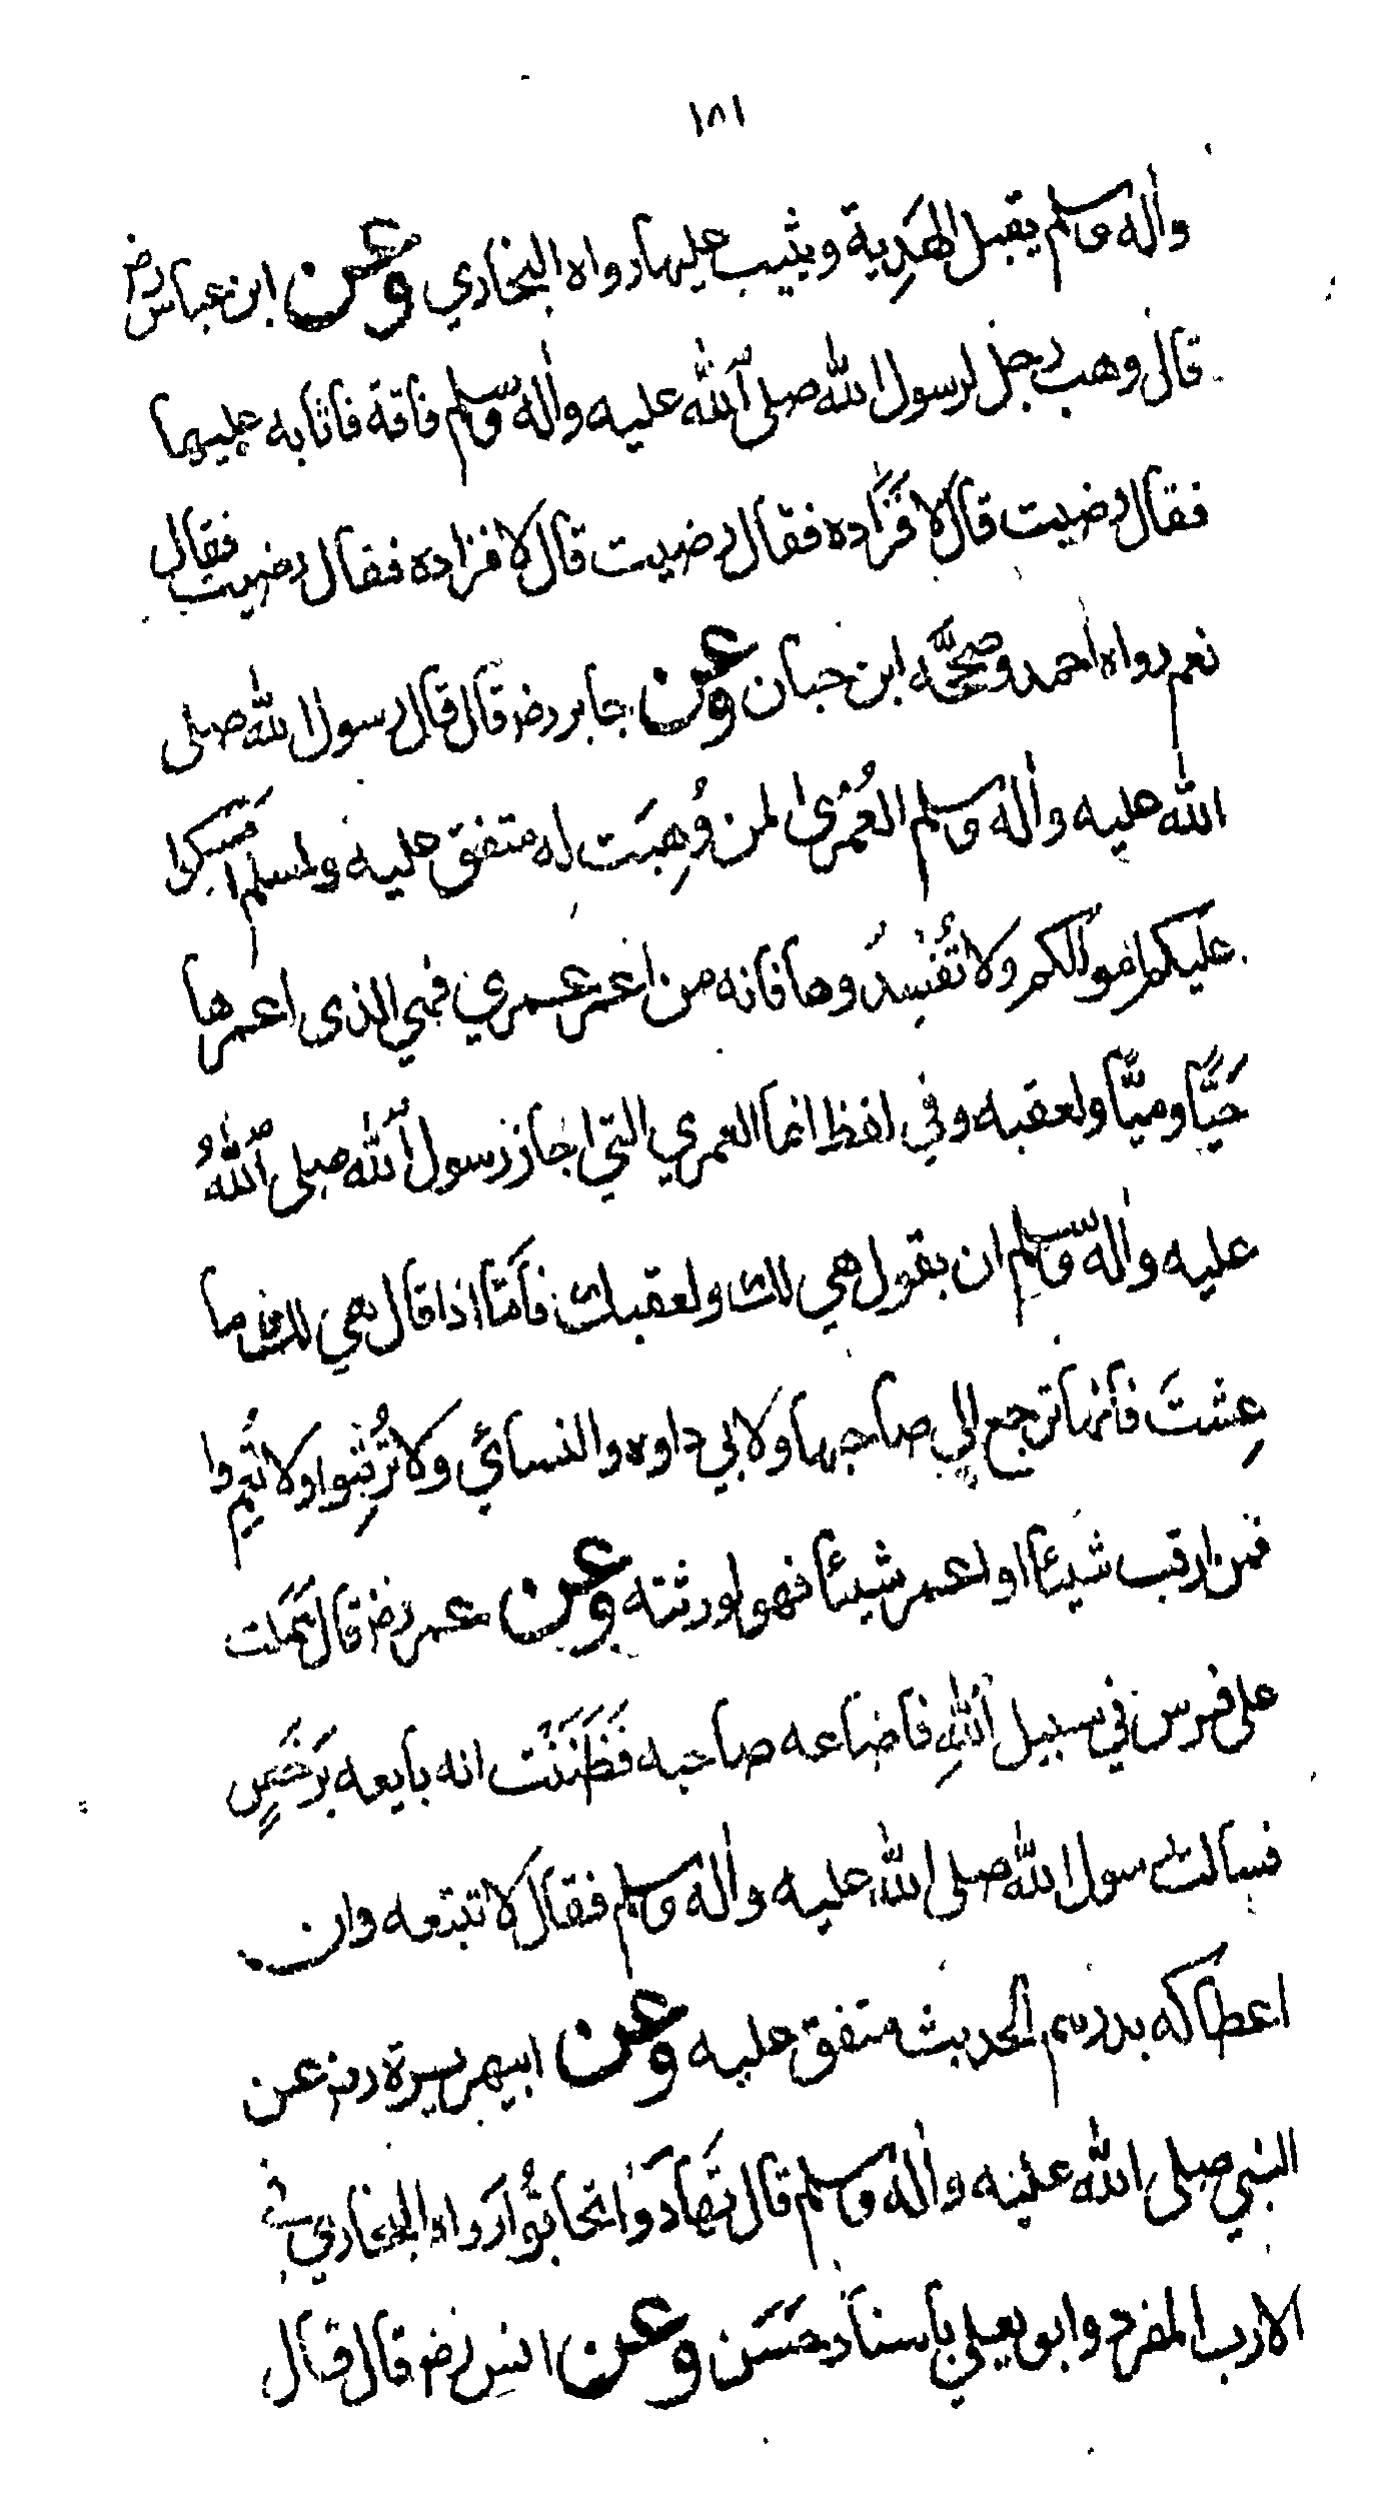 ١٨١
واٰله وسلم يقبل الهَدِية ويثيب عليها رواه البخاري وعن ابن عباس رض
قال وهب رجل لرسول الله صلى الله عليه واٰله وسلم ناقة فاثابه عليها
فقال رضيت قال لا فزاده فقال رضيت قال لا فزاده فقال رضيت فقال
نعم رواه احمد وصححَّه ابن حبان وعن جابر رض قال قال رسول الله صلى
الله عليه واٰله وسلم العُمْرىٰ لمن وُهِبَت له متفق عليه ولمسلم امسِكوا
عليكم اموالكم ولا تُفْسِدَوها فانه من اعمر عمري فهي الذى اعمرها
حَيًّا وميتًّا ولعقبه وفي لفظ انما العمري التي اجاز رسول الله صلى اللهُ
عليه واٰله وسلم ان يقول هي لك ولعقبك فاَمّا اذا قال هي لك ما
عِشتَ فانها ترجع الي صاحبها ولابي داود والنسائي ولا تُرْقِبُوا ولا تُعمِروا
فمن ارقب شيئا او اعمر شيئا فهو لورثته وعن عمر رض قال حَمَلت
على فرس في سبيل اللهِ فاضاعه صاحبه فَظَنَنْت انه بايعه برَخَصٍ
فسالت رسول الله صلى الله عليه واٰله وسلم فقال لا تبتعه وان
اعطاكه بدرهم الحديث متفق عليه وعن ابيهريرة رض عن
النبي صلى الله عليه واٰله وسلم قال تَهادَوْا تحابُّوْا رواه البخاري في
الادب المفرد وابو يعلي باسناد حَسَن وعن انس رض قال قال